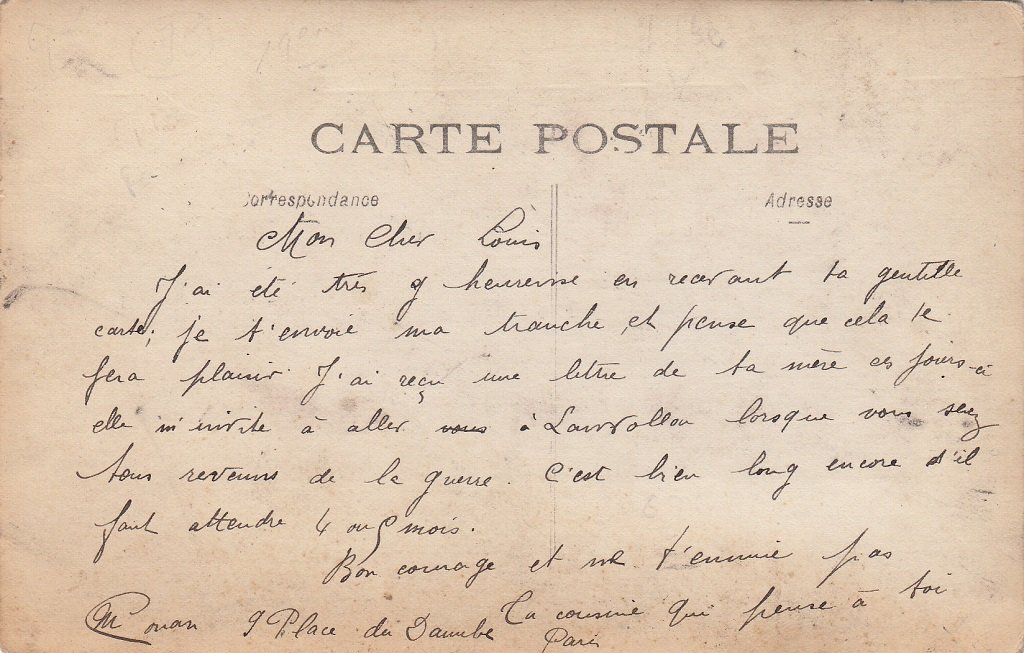 CARTE POSTALE
Correspondance
Adresse
Mon Cher Louis
J'ai été très heureuse en recevant ta gentille
carte; je t'envoie ma tranche, et pense que cela te
fera plaisir. J'ai reçu une lettre de ta mère ces jours-ci
elle m'invite à aller vous à Lanvollon lorsque vous serez
tous revenus de la guerre. C'est bien long encore s'il
faut attendre 4 ou 5 mois.
Bon courage et ne t'ennuie pas
Ta cousine qui pense à toi
M Conan 9 Place du Danube
Paris